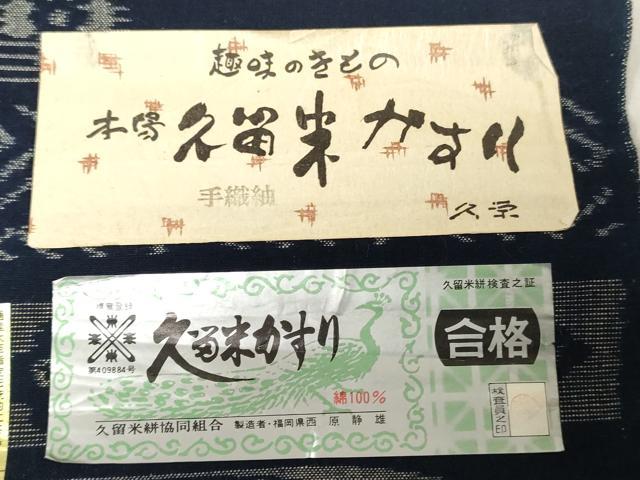 趣味のきもの
本場 久留米かすり
手織紬
久栄
久留米絣検査之証
商標登録
第409884号
久留米かすり
合格
綿100%
検査員之印
久留米絣協同組合 製造者・福岡県西 原静雄